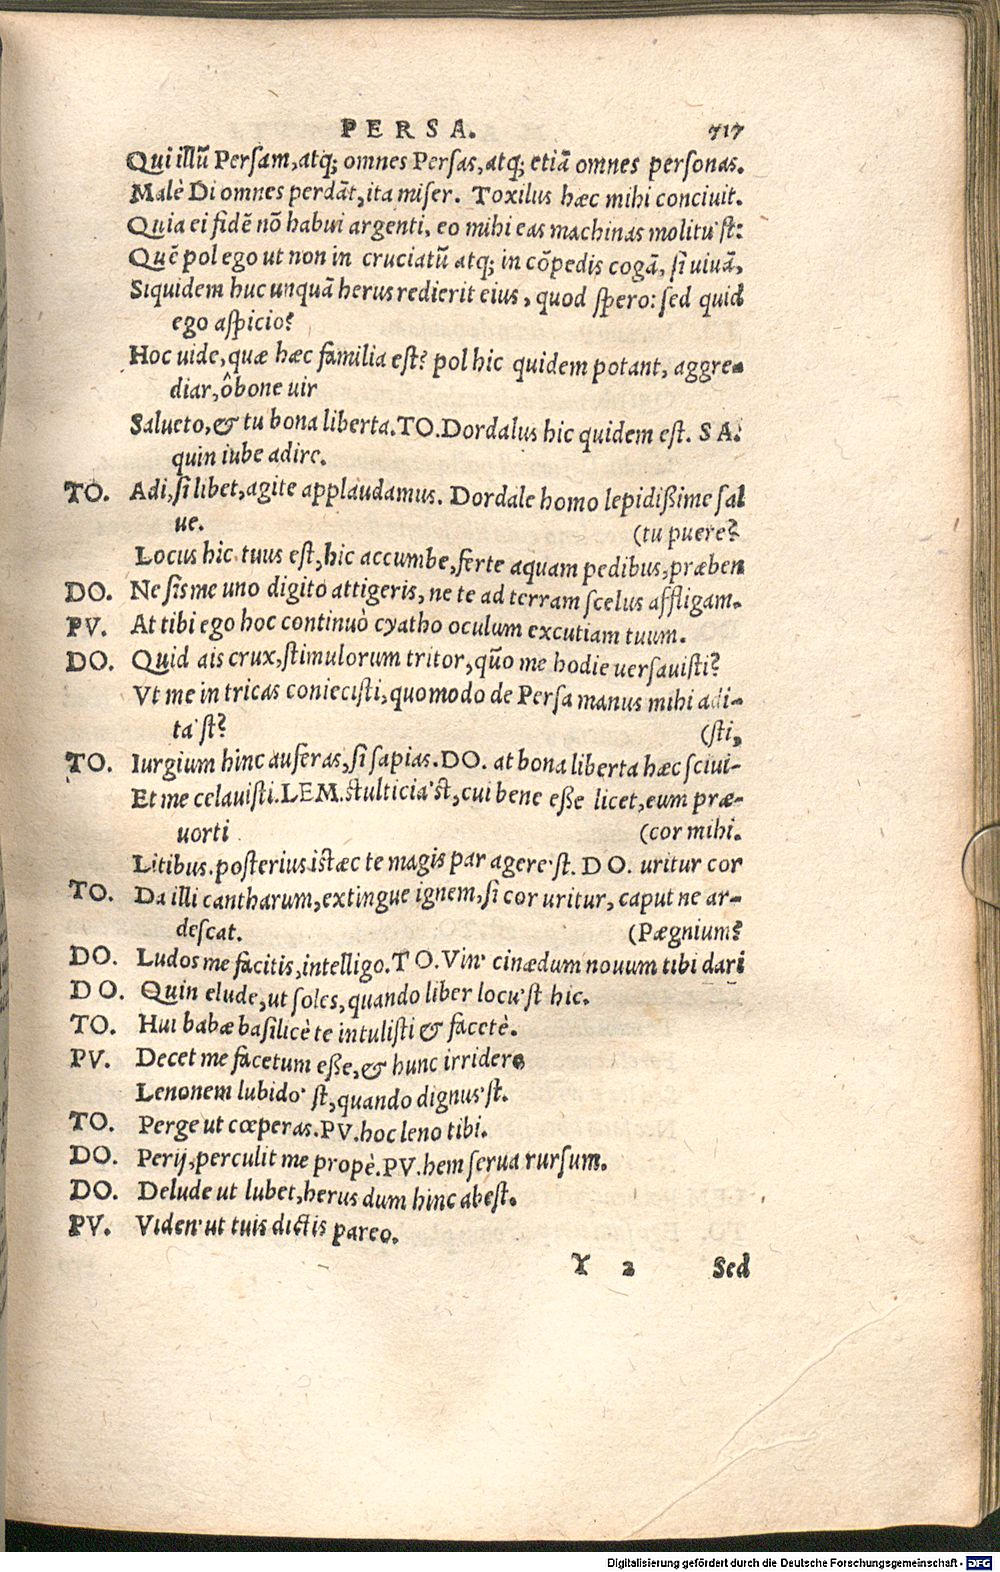 PERSA. 717
Qui illũ Persam, atq; omnes Persas, atq; etiã omnes personas.
Malè Di omnes perdãt, ita miser. Toxilus hæc mihi conciuit.
Quia ei fidẽ nõ habui argenti, eo mihi eas machinas molitu'st:
Quẽ pol ego ut non in cruciatũ atq; in cõpedis cogã, si uiuã,
Siquidem huc unquã herus redierit eius, quod spero: sed quid
ego aspicio?
Hoc uide, quæ hæc familia est? pol hic quidem potant, aggre-
diar, ô bone uir
Salueto, & tu bona liberta. TO. Dordalus hic quidem est. SA.
quin iube adire.
TO. Adi, si libet, agite applaudamus. Dordale homo lepidißime sal
ue. (tu puere?
Locus hic tuus est, hic accumbe, ferte aquam pedibus, præben
DO. Ne sis me uno digito attigeris, ne te ad terram scelus affligam.
PV. At tibi ego hoc continuò cyatho oculum excutiam tuum.
DO. Quid ais crux, stimulorum tritor, quõ me hodie uersauisti?
Vt me in tricas coniecisti, quomodo de Persa manus mihi adi-
ta'st? (sti,
TO. Iurgium hinc auferas, si sapias. DO. at bona liberta hæc sciui-
Et me celauisti. LEM. stulticia'st, cui bene eße licet, eum præ-
uorti (cor mihi.
Litibus. posterius istæc te magis par agere'st. DO. uritur cor
TO. Da illi cantharum, extingue ignem, si cor uritur, caput ne ar-
descat. (Pægnium?
DO. Ludos me facitis, intelligo. TO. Vin' cinædum nouum tibi dari
DO. Quin elude, ut soles, quando liber locu'st hic.
TO. Hui babæ basilicè te intulisti & facetè.
PV. Decet me facetum eße, & hunc irridere
Lenonem lubido'st, quando dignus'st.
TO. Perge ut cœperas. PV. hoc leno tibi.
DO. Perij, perculit me propè. PV. hem serua rursum.
DO. Delude ut lubet, herus dum hinc abest.
PV. Viden' ut tuis dictis pareo.
Y 2 Sed
Digitalisierung gefördert durch die Deutsche Forschungsgemeinschaft - DFG